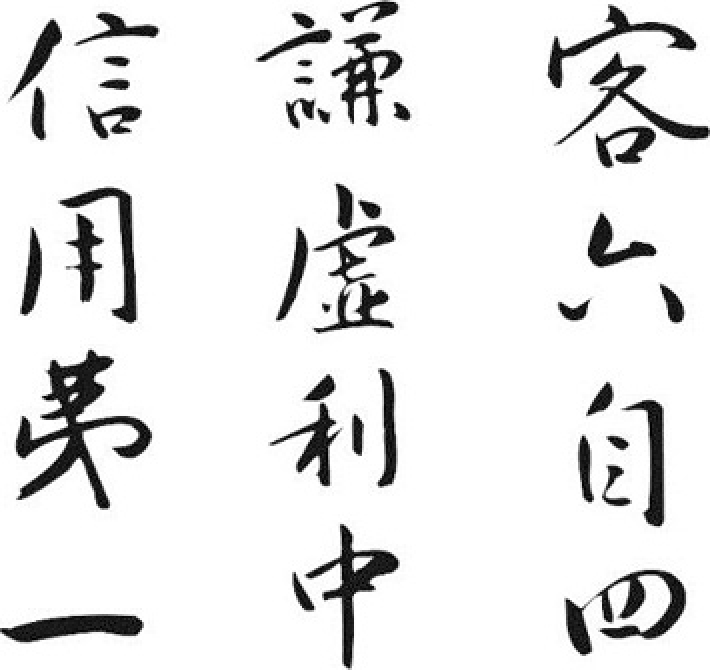 客六自四
謙虚利中
信用第一